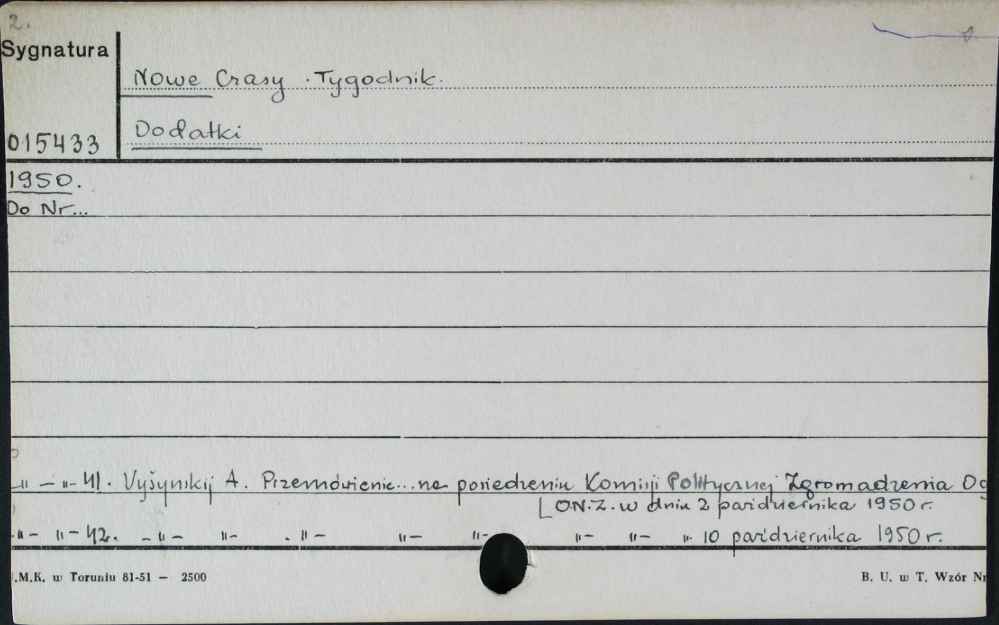 2.
Sygnatura
Nowe Czasy. Tygodnik.
015433
Dodatki
1950.
Do Nr...
-"- -"- 41. Vyšynskij A. Przemówienie... na posiedzeniu Komisji Politycznej Zgromadzenia Og
[O.N.Z. w dniu 2 października 1950 r.
-"- "- 42. -"- "- . "- "- "- "- "- "- 10 października 1950 r.
.M.K. w Toruniu 81-51 — 2500
B. U. w T. Wzór Nr